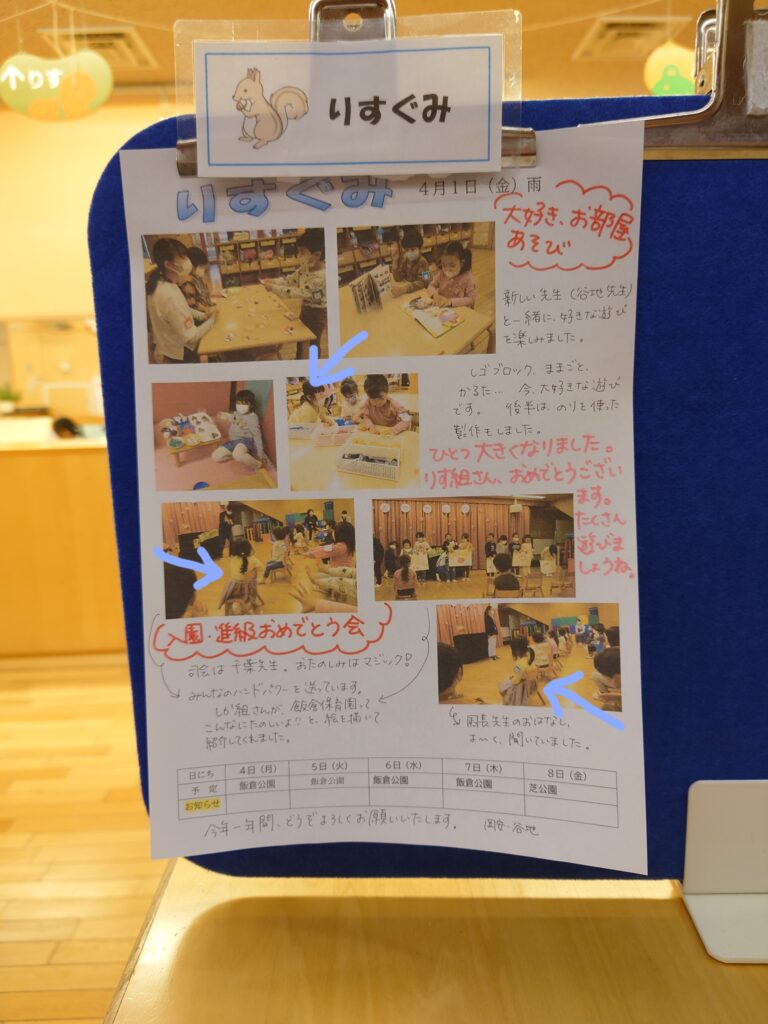 ↑りす
りすぐみ
りすぐみ
4月1日（金）雨
大好き、お部屋
あそび
新しい先生（谷地先生）
と一緒に、好きな遊び
を楽しみました。
レゴブロック、ままごと、
かるた… 今、大好きな遊び
です。 後半は、のりを使った
製作もしました。
ひとつ大きくなりました。
りす組さん、おめでとうござい
ます。
たくさん
遊びま
しょうね。
入園・進級おめでとう会
司会は千葉先生。おたのしみはマジック！
みんなのハンドパワーを送っています。
しか組さんが、飯倉保育園って
こんなにたのしいよ!!と、絵を描いて
紹介してくれました。
園長先生のおはなし、
よ〜く、聞いていました。
日にち 4日（月） 5日（火） 6日（水） 7日（木） 8日（金）
予 定 飯倉公園 飯倉公園 飯倉公園 飯倉公園 芝公園
お知らせ
今年一年間、どうぞよろしくお願いいたします。 岡安・谷地